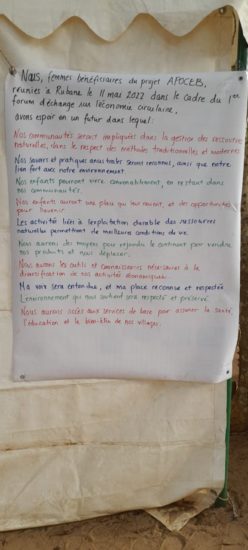 Nous, femmes bénéficiaires du projet APOCEB,
réunies à Rubane le 11 mai 2022 dans le cadre du 1er
forum d'échange sur l'économie circulaire,
avons espoir en un futur dans lequel:
Nos communautés seront impliquées dans la gestion des ressources
naturelles, dans le respect des méthodes traditionnelles et modernes
Nos savoirs et pratiques ancestrales seront reconnus, ainsi que notre
lien fort avec notre environnement.
Nos enfants pourront vivre convenablement, en restant dans
nos communautés.
Nos enfants auront une place qui leur revient, et des opportunités
pour l'avenir
Les activités liées à l'exploitation durable des ressources
naturelles permettront de meilleures conditions de vie.
Nous aurons des moyens pour rejoindre le continent pour vendre
nos produits et nous déplacer.
Nous aurons les outils et connaissances nécessaires à la
diversification de nos activités économiques.
Ma voix sera entendue, et ma place reconnue et respectée
L'environnement qui nous soutient sera respecté et préservé
Nous aurons accès aux services de base pour assurer la santé,
l'éducation et le bien-être de nos villages.